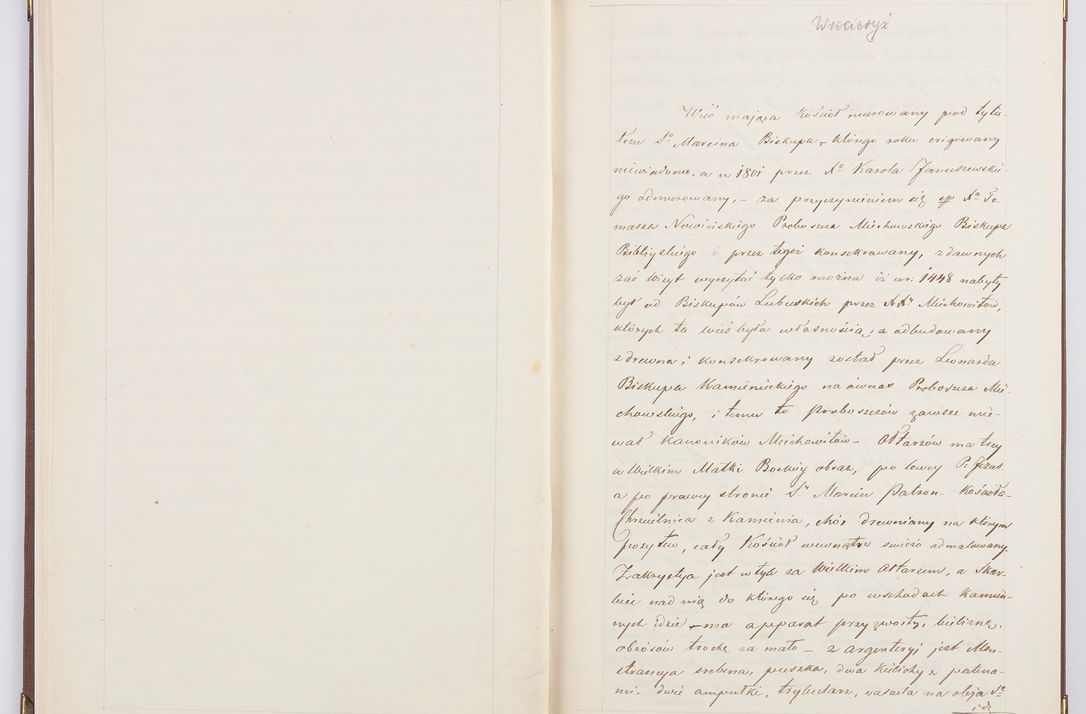 Wrocieryż
Wieś mająca Kościół murowany pod tytu-
łem Sº Marcina Biskupa, którego roku erigowany
niewiadomo, a w 1801 przez Xº Karola Januszewskie
go odmurowany, – za przyczynieniem się Xº To.
masza Nowińskiego Proboszcza Miechowskiego Biskupa
Biblijskiego i przez tegoż konsekrowany, z dawnych
zaś wizyt wyczytać tylko można iż w r. 1448 nabyty
był od Biskupów Lubuskich przez XXº Miechowitów,
których ta wieś była własnością, a odbudowany
z drewna i konsekrowany został przez Leonarda
Biskupa Kamienieckiego na ówczas Proboszcza Mie-
chowskiego, i temu to Proboszczów zawsze mie-
wał Kanoników Miechowitów – Ołtarzów ma trzy
w Wielkim Matki Boskiej obraz, po lewej P. Jezus
a po prawej stronie Sº Marcin Patron Kościoła –
Chrzcielnica z Kamienia, chór drewniany na którym
pozytew, cały Kościół wewnątrz świeżo odmalowany.
Zakrystya jest w tyle za Wielkim Ołtarzem, a Skar-
biec nad nią do którego się po wschodach kamien-
nych idzie – ma apparat przyzwoity, bieliznę,
obrusów trochę za mało – z argenteryi jest Mon-
strancya srebrna, puszka, dwa kielichy z patena-
mi. dwie ampułki, trybularz, vascula na oleja Sº